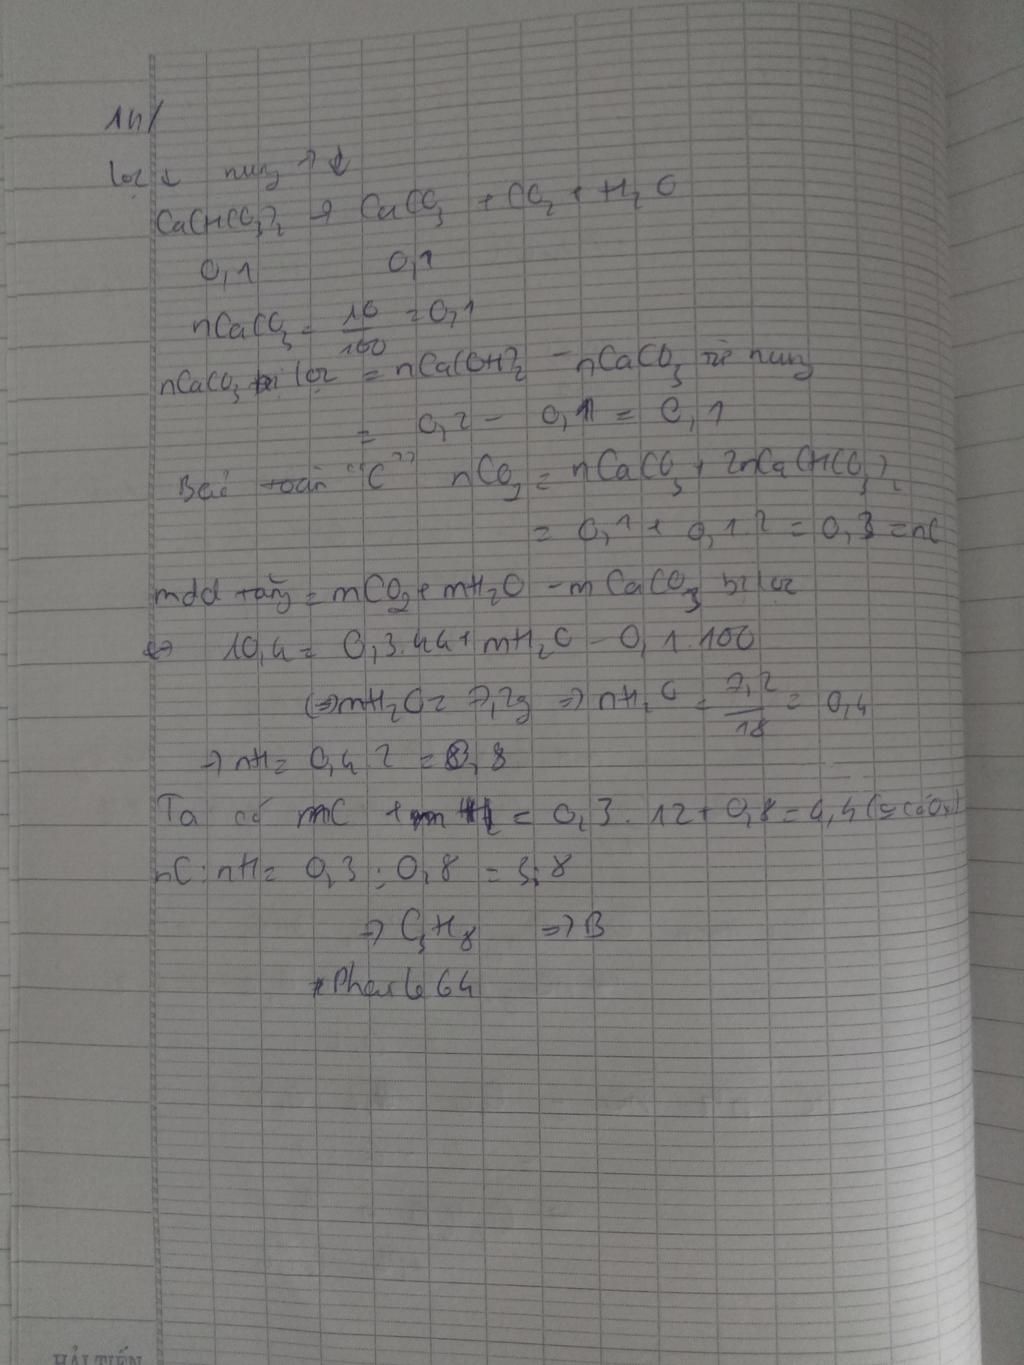 14/
lọc ↓ nung ↑ ↓
Ca(HCO3)2 → CaCO3 + CO2 + H2O
0,1 0,1
nCaCO3 = 10/100 = 0,1
nCaCO3 lọc = nCa(OH)2 - nCaCO3 nung
= 0,2 - 0,1 = 0,1
Bảo toàn "C" nCO2 = nCaCO3 + 2nCa(HCO3)2
= 0,1 + 0,1.2 = 0,3 = nC
mdd tăng = mCO2 + mH2O - mCaCO3 bị lọc
⇔ 10,4 = 0,3.44 + mH2O - 0,1.100
⇔ mH2O = 7,2g ⇒ nH2O = 7,2/18 = 0,4
→ nH = 0,4.2 = 0,8
Ta có mC + mH = 0,3.12 + 0,8 = 4,4
nC : nH = 0,3 : 0,8 = 3:8
⇒ C3H8 ⇒ B
64
HẢI TIẾN